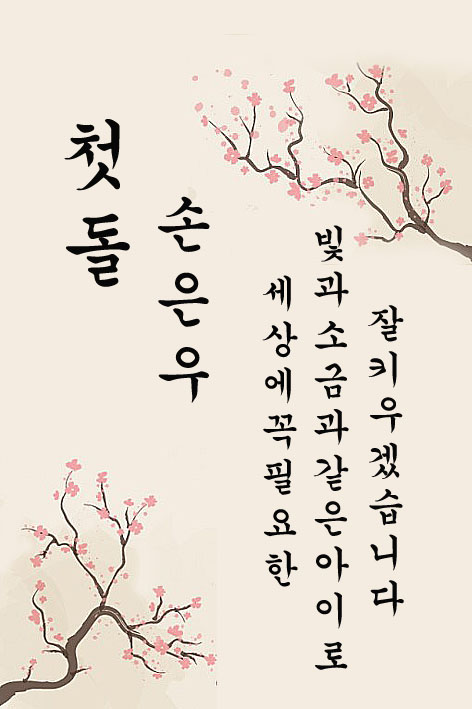 첫돌
손은우
세상에꼭필요한
빛과소금과같은아이로
잘키우겠습니다